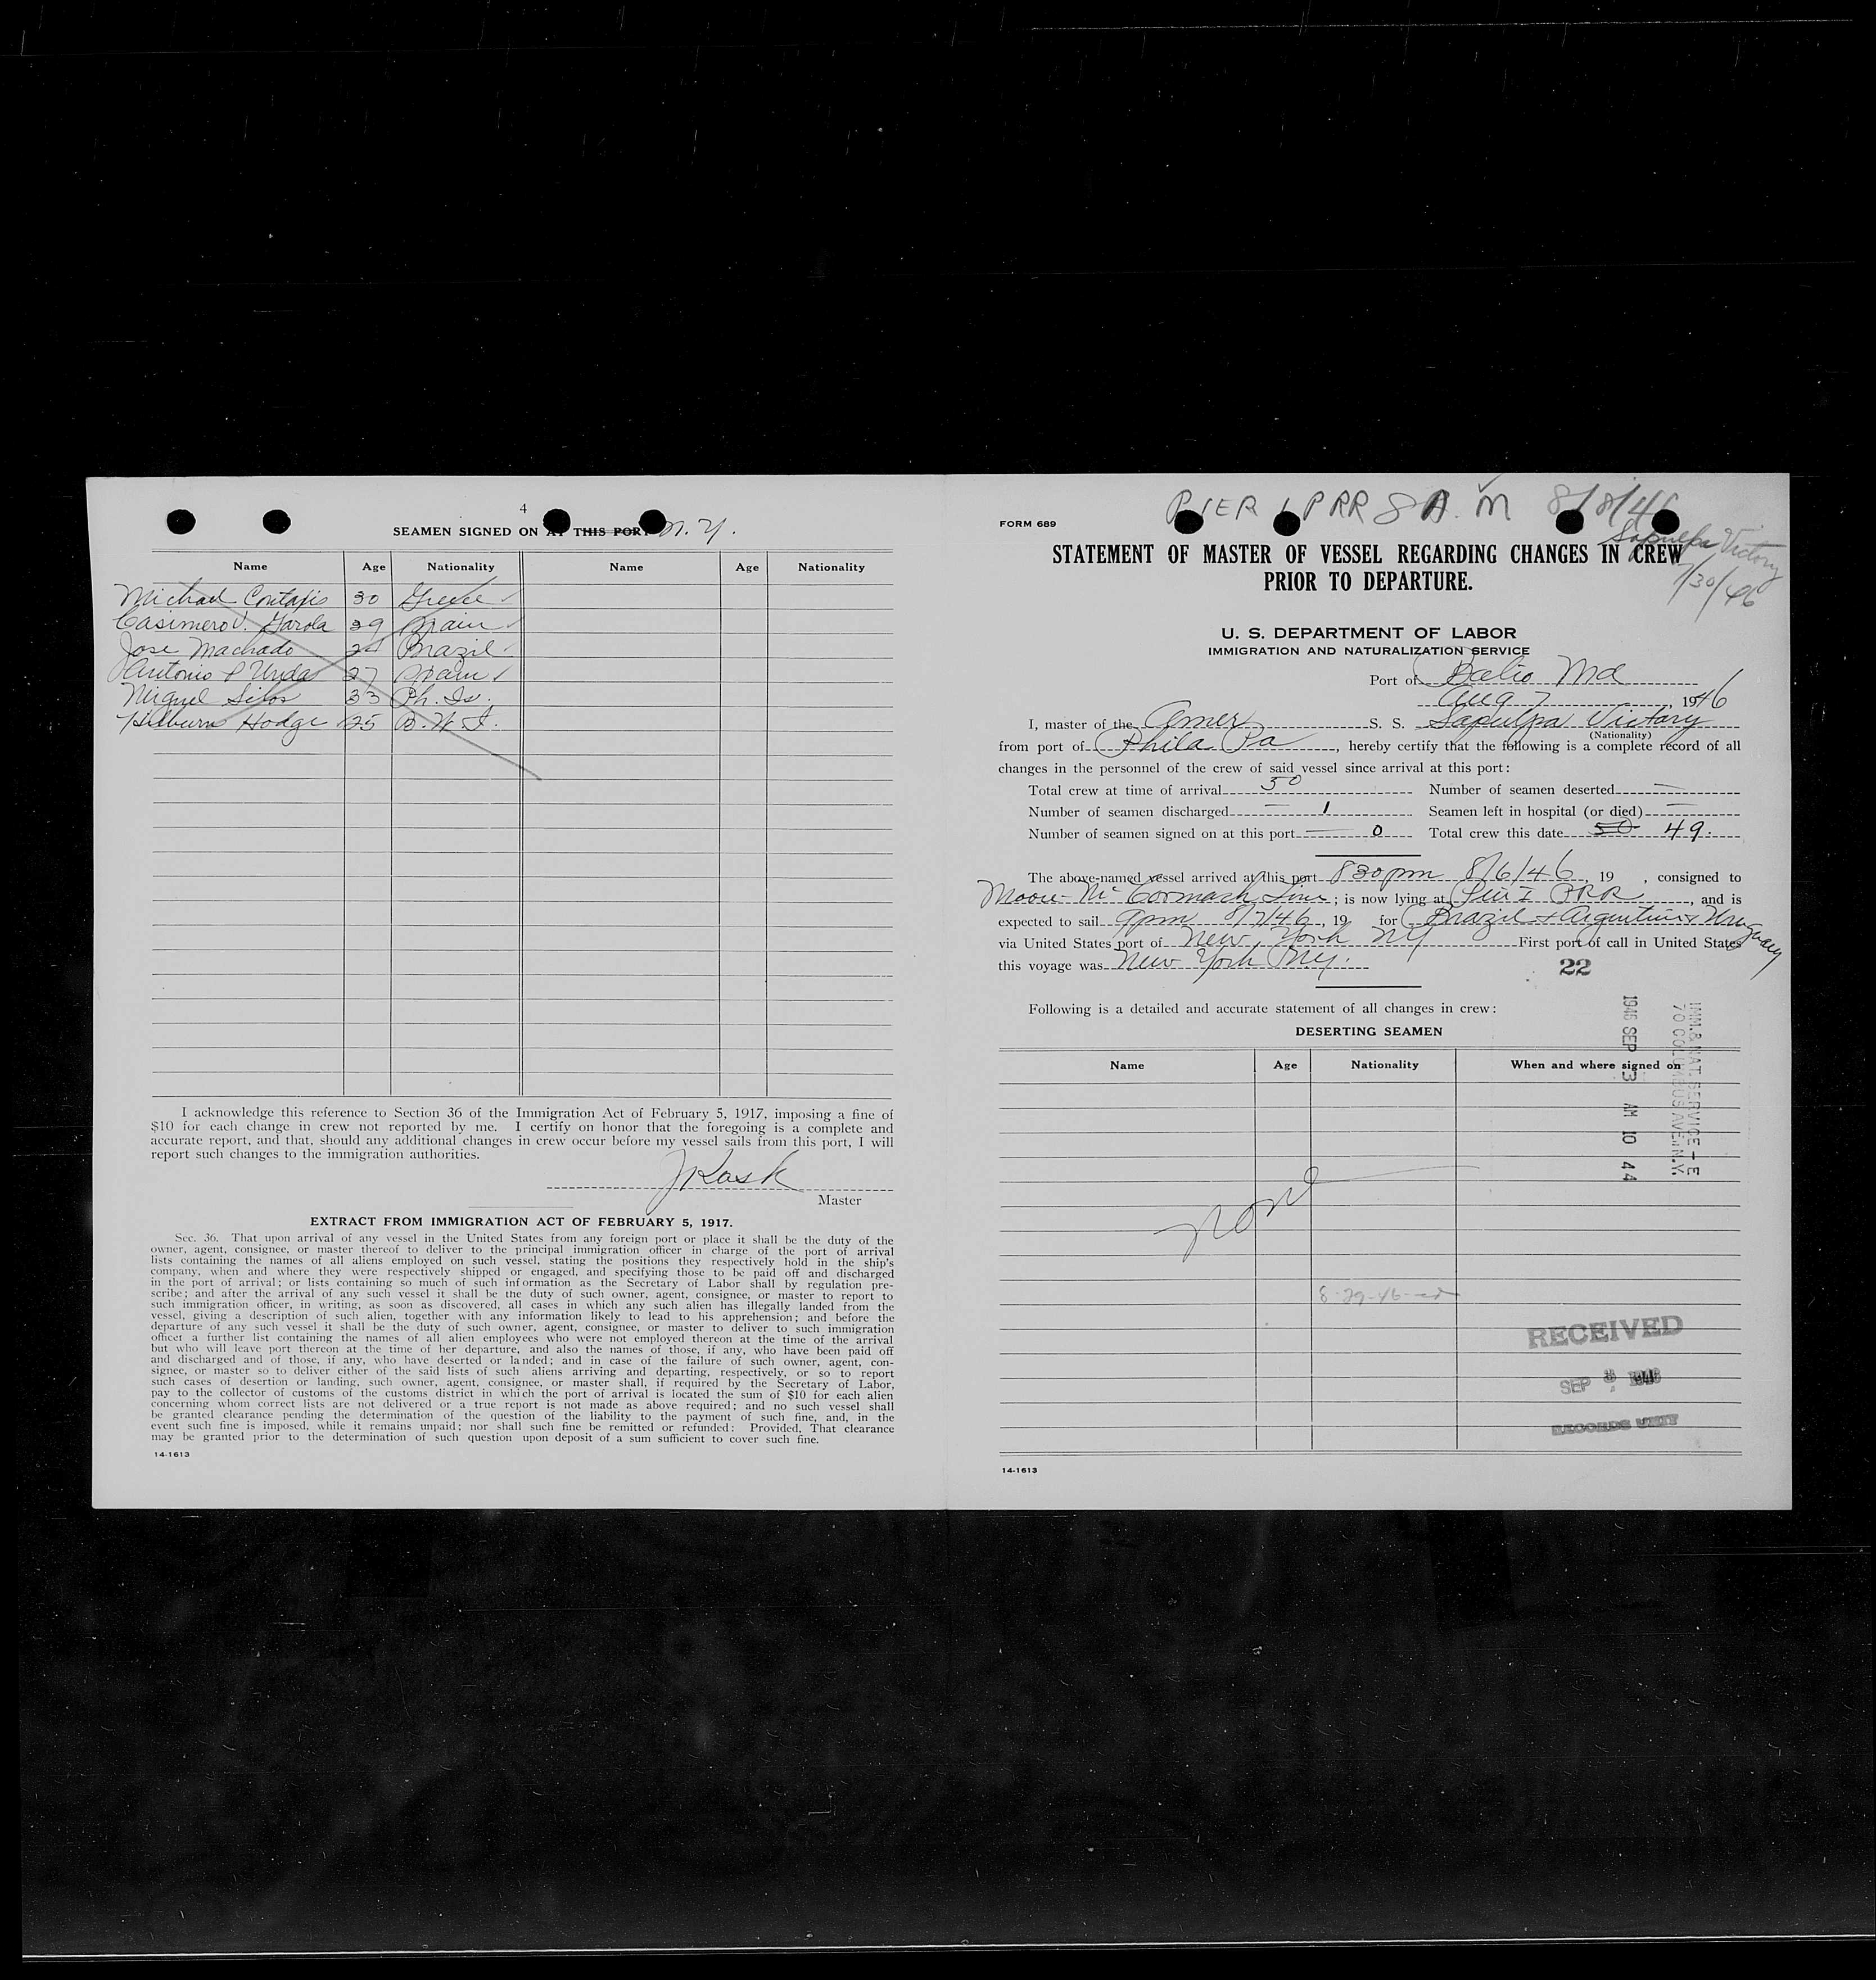 4
SEAMEN SIGNED ON AT THIS PORT N. Y.
Name Age Nationality Name Age Nationality
Michael 30 Greece
Casimero V. Garola 39 Spain
Jose Machado 24 Brazil
Antonio P Unda 27 Spain
Miguel Silos 33 Ph. Is.
Hilburn Hodge 25 B. W. I.
I acknowledge this reference to Section 36 of the Immigration Act of February 5, 1917, imposing a fine of
$10 for each change in crew not reported by me. I certify on honor that the foregoing is a complete and
accurate report, and that, should any additional changes in crew occur before my vessel sails from this port, I will
report such changes to the immigration authorities.
J Kask
Master
EXTRACT FROM IMMIGRATION ACT OF FEBRUARY 5, 1917.
Sec. 36. That upon arrival of any vessel in the United States from any foreign port or place it shall be the duty of the
owner, agent, consignee, or master thereof to deliver to the principal immigration officer in charge of the port of arrival
lists containing the names of all aliens employed on such vessel, stating the positions they respectively hold in the ship's
company, when and where they were respectively shipped or engaged, and specifying those to be paid off and discharged
in the port of arrival; or lists containing so much of such information as the Secretary of Labor shall by regulation pre-
scribe; and after the arrival of any such vessel it shall be the duty of such owner, agent, consignee, or master to report to
such immigration officer, in writing, as soon as discovered, all cases in which any such alien has illegally landed from the
vessel, giving a description of such alien, together with any information likely to lead to his apprehension; and before the
departure of any such vessel it shall be the duty of such owner, agent, consignee, or master to deliver to such immigration
officer a further list containing the names of all alien employees who were not employed thereon at the time of the arrival
but who will leave port thereon at the time of her departure, and also the names of those, if any, who have been paid off
and discharged and of those, if any, who have deserted or landed; and in case of the failure of such owner, agent, con-
signee, or master so to deliver either of the said lists of such aliens arriving and departing, respectively, or so to report
such cases of desertion or landing, such owner, agent, consignee, or master shall, if required by the Secretary of Labor,
pay to the collector of customs of the customs district in which the port of arrival is located the sum of $10 for each alien
concerning whom correct lists are not delivered or a true report is not made as above required; and no such vessel shall
be granted clearance pending the determination of the question of the liability to the payment of such fine, and, in the
event such fine is imposed, while it remains unpaid; nor shall such fine be remitted or refunded: Provided, That clearance
may be granted prior to the determination of such question upon deposit of a sum sufficient to cover such fine.
14-1613
PIER 1 PRR 8 A. M 8/8/46
FORM 689
Sapulpa Victory
7/30/46
STATEMENT OF MASTER OF VESSEL REGARDING CHANGES IN CREW
PRIOR TO DEPARTURE.
U. S. DEPARTMENT OF LABOR
IMMIGRATION AND NATURALIZATION SERVICE
Port of Balto Md
Aug 7, 1946
I, master of the Amer S. S. Sapulpa Victory
(Nationality)
from port of Phila Pa, hereby certify that the following is a complete record of all
changes in the personnel of the crew of said vessel since arrival at this port:
Total crew at time of arrival 50 Number of seamen deserted —
Number of seamen discharged — 1 Seamen left in hospital (or died) —
Number of seamen signed on at this port — 0 Total crew this date 50 49.
The above-named vessel arrived at this port 830 pm 8/6/46, 19 , consigned to
Moore-McCormack Line; is now lying at Pier 1 PRR, and is
expected to sail 9pm 8/7/46, 19 for Brazil & Argentina & Uruguay
via United States port of New York NY First port of call in United States
this voyage was New York Ny.
22
Following is a detailed and accurate statement of all changes in crew:
DESERTING SEAMEN
Name Age Nationality When and where signed on
IMM. & NAT. SERVICE - E
70 COLUMBUS AVE. N.Y.
1946 SEP 3 AM 10 44
none
8-29-46
RECEIVED
SEP 3 1946
RECORDS UNIT
14-1613